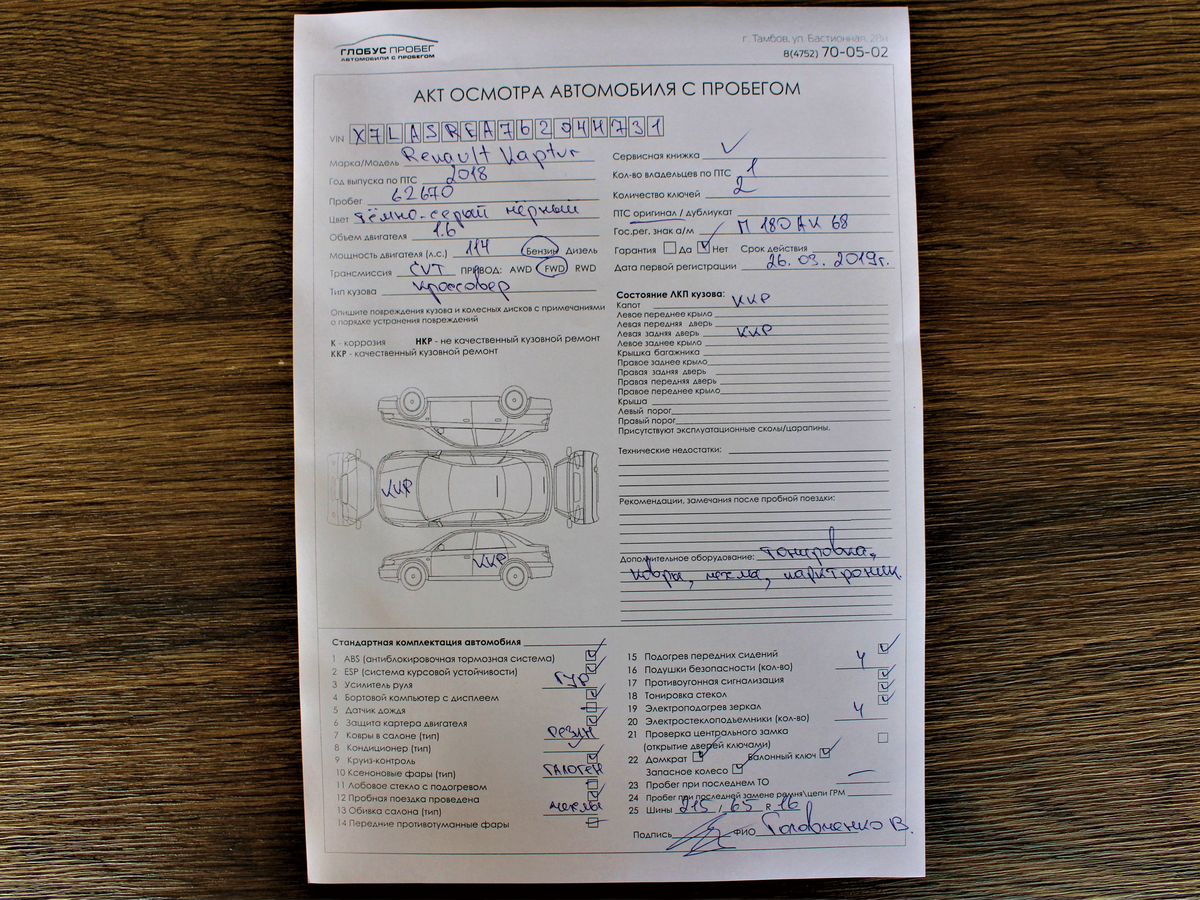 ГЛОБУС ПРОБЕГ
АВТОМОБИЛИ С ПРОБЕГОМ
г. Тамбов, ул. Бастионная, 28н
8(4752) 70-05-02
АКТ ОСМОТРА АВТОМОБИЛЯ С ПРОБЕГОМ
VIN X7LASREA762044731
Марка/Модель Renault Kaptur
Год выпуска по ПТС 2018
Пробег 62670
Цвет тёмно-серый чёрный
Объем двигателя 1.6
Мощность двигателя (л.с.) 114 Бензин Дизель
Трансмиссия CVT ПРИВОД: AWD FWD RWD
Тип кузова кроссовер
Опишите повреждения кузова и колесных дисков с примечаниями
о порядке устранения повреждений
К - коррозия НКР - не качественный кузовной ремонт
ККР - качественный кузовной ремонт
ККР
ККР
Сервисная книжка
Кол-во владельцев по ПТС 1
Количество ключей 2
ПТС оригинал / дубликат
Гос.рег. знак а/м П 180 АК 68
Гарантия Да Нет Срок действия
Дата первой регистрации 26.03.2019г.
Состояние ЛКП кузова:
Капот ККР
Левое переднее крыло
Левая передняя дверь
Левая задняя дверь ККР
Левое заднее крыло
Крышка багажника
Правое заднее крыло
Правая задняя дверь
Правая передняя дверь
Правое переднее крыло
Крыша
Левый порог
Правый порог
Присутствуют эксплуатационные сколы/царапины.
Технические недостатки:
Рекомендации, замечания после пробной поездки:
Дополнительное оборудование: тонировка,
ковры, чехлы, парктроник
Стандартная комплектация автомобиля
1 ABS (антиблокировочная тормозная система)
2 ESP (система курсовой устойчивости)
3 Усилитель руля ГУР
4 Бортовой компьютер с дисплеем
5 Датчик дождя
6 Защита картера двигателя
7 Ковры в салоне (тип) резин
8 Кондиционер (тип)
9 Круиз-контроль
10 Ксеноновые фары (тип) галоген
11 Лобовое стекло с подогревом
12 Пробная поездка проведена
13 Обивка салона (тип) чехлы
14 Передние противотуманные фары
15 Подогрев передних сидений
16 Подушки безопасности (кол-во) 4
17 Противоугонная сигнализация
18 Тонировка стекол
19 Электроподогрев зеркал
20 Электростеклоподъемники (кол-во) 4
21 Проверка центрального замка
(открытие дверей ключами)
22 Домкрат Балонный ключ
Запасное колесо
23 Пробег при последнем ТО —
24 Пробег при последней замене ремня\цепи ГРМ
25 Шины 215 / 65 R 16
Подпись ФИО Головченко В.